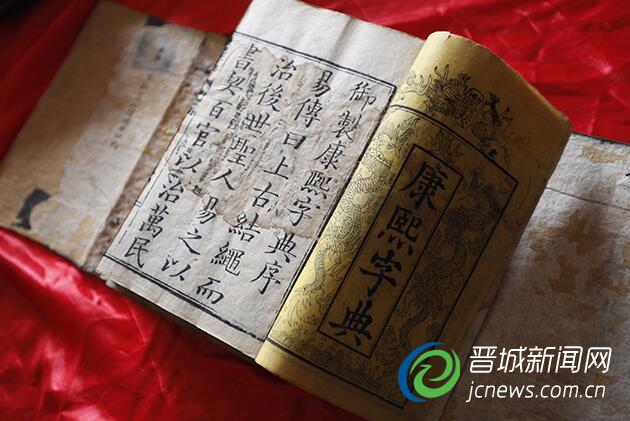 康熙字典
御製康熙字典序
易傳曰上古結繩而
治後世聖人易之以
書契百官以治萬民
晋城新闻网
jcnews.com.cn